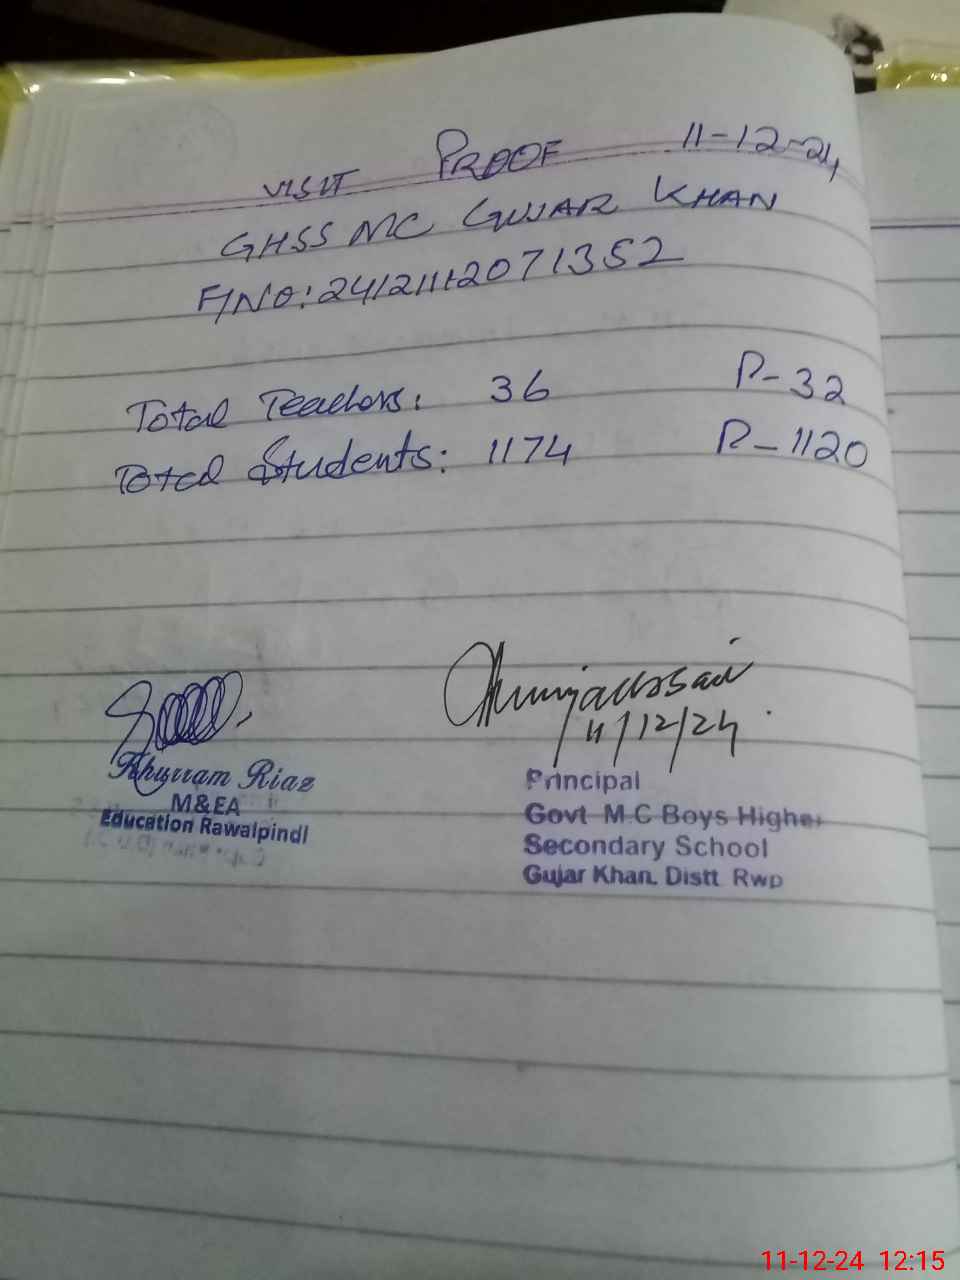 VISIT PROOF 11-12-24
GHSS MC GUJAR KHAN
F/NO: 24121112071352
Total Teachers: 36 P-32
Total Students: 1174 P-1120
11/12/24
Khurram Riaz
M&EA
Education Rawalpindi
Principal
Govt M.C Boys Higher
Secondary School
Gujar Khan. Distt Rwp
11-12-24 12:15